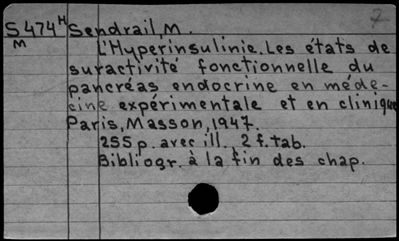 7
S474H Sendrail, M.
M L'Hyperinsulinie. Les états de
suractivité fonctionnelle du
pancréas endocrine en méde-
cine expérimentale et en clinique
Paris, Masson, 1947.
255 p. avec ill., 2 f. tab.
Bibliogr. à la fin des chap.